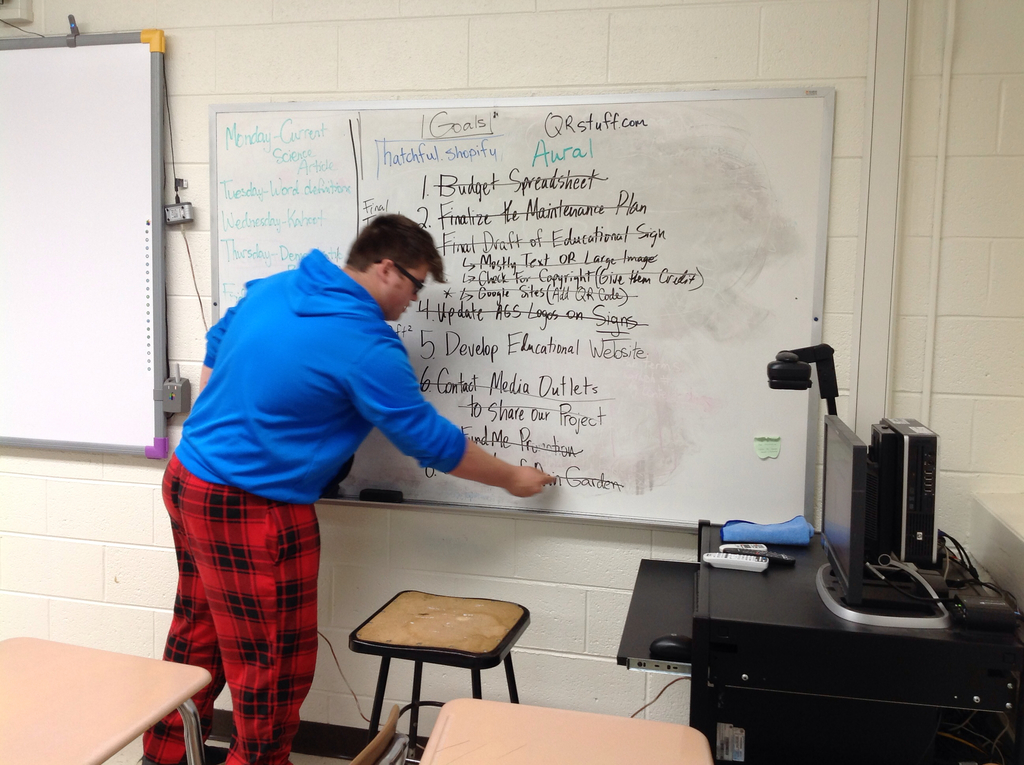 Monday-Current
Science
Article
Tuesday-Word definitions
Wednesday-Kahoot
Thursday-
Goals
QRstuff.com
hatchful.shopify
Aural
Final
1. Budget Spreadsheet
2. Finalize the Maintenance Plan
Final Draft of Educational Sign
↳ Mostly Text OR Large Image
↳ Check For Copyright (Give them Credit)
* ↳ Google Sites (Add QR Code)
4. Update AGS Logos on Signs
5 Develop Educational Website
6 Contact Media Outlets
to share our Project
Fund Me
Garden